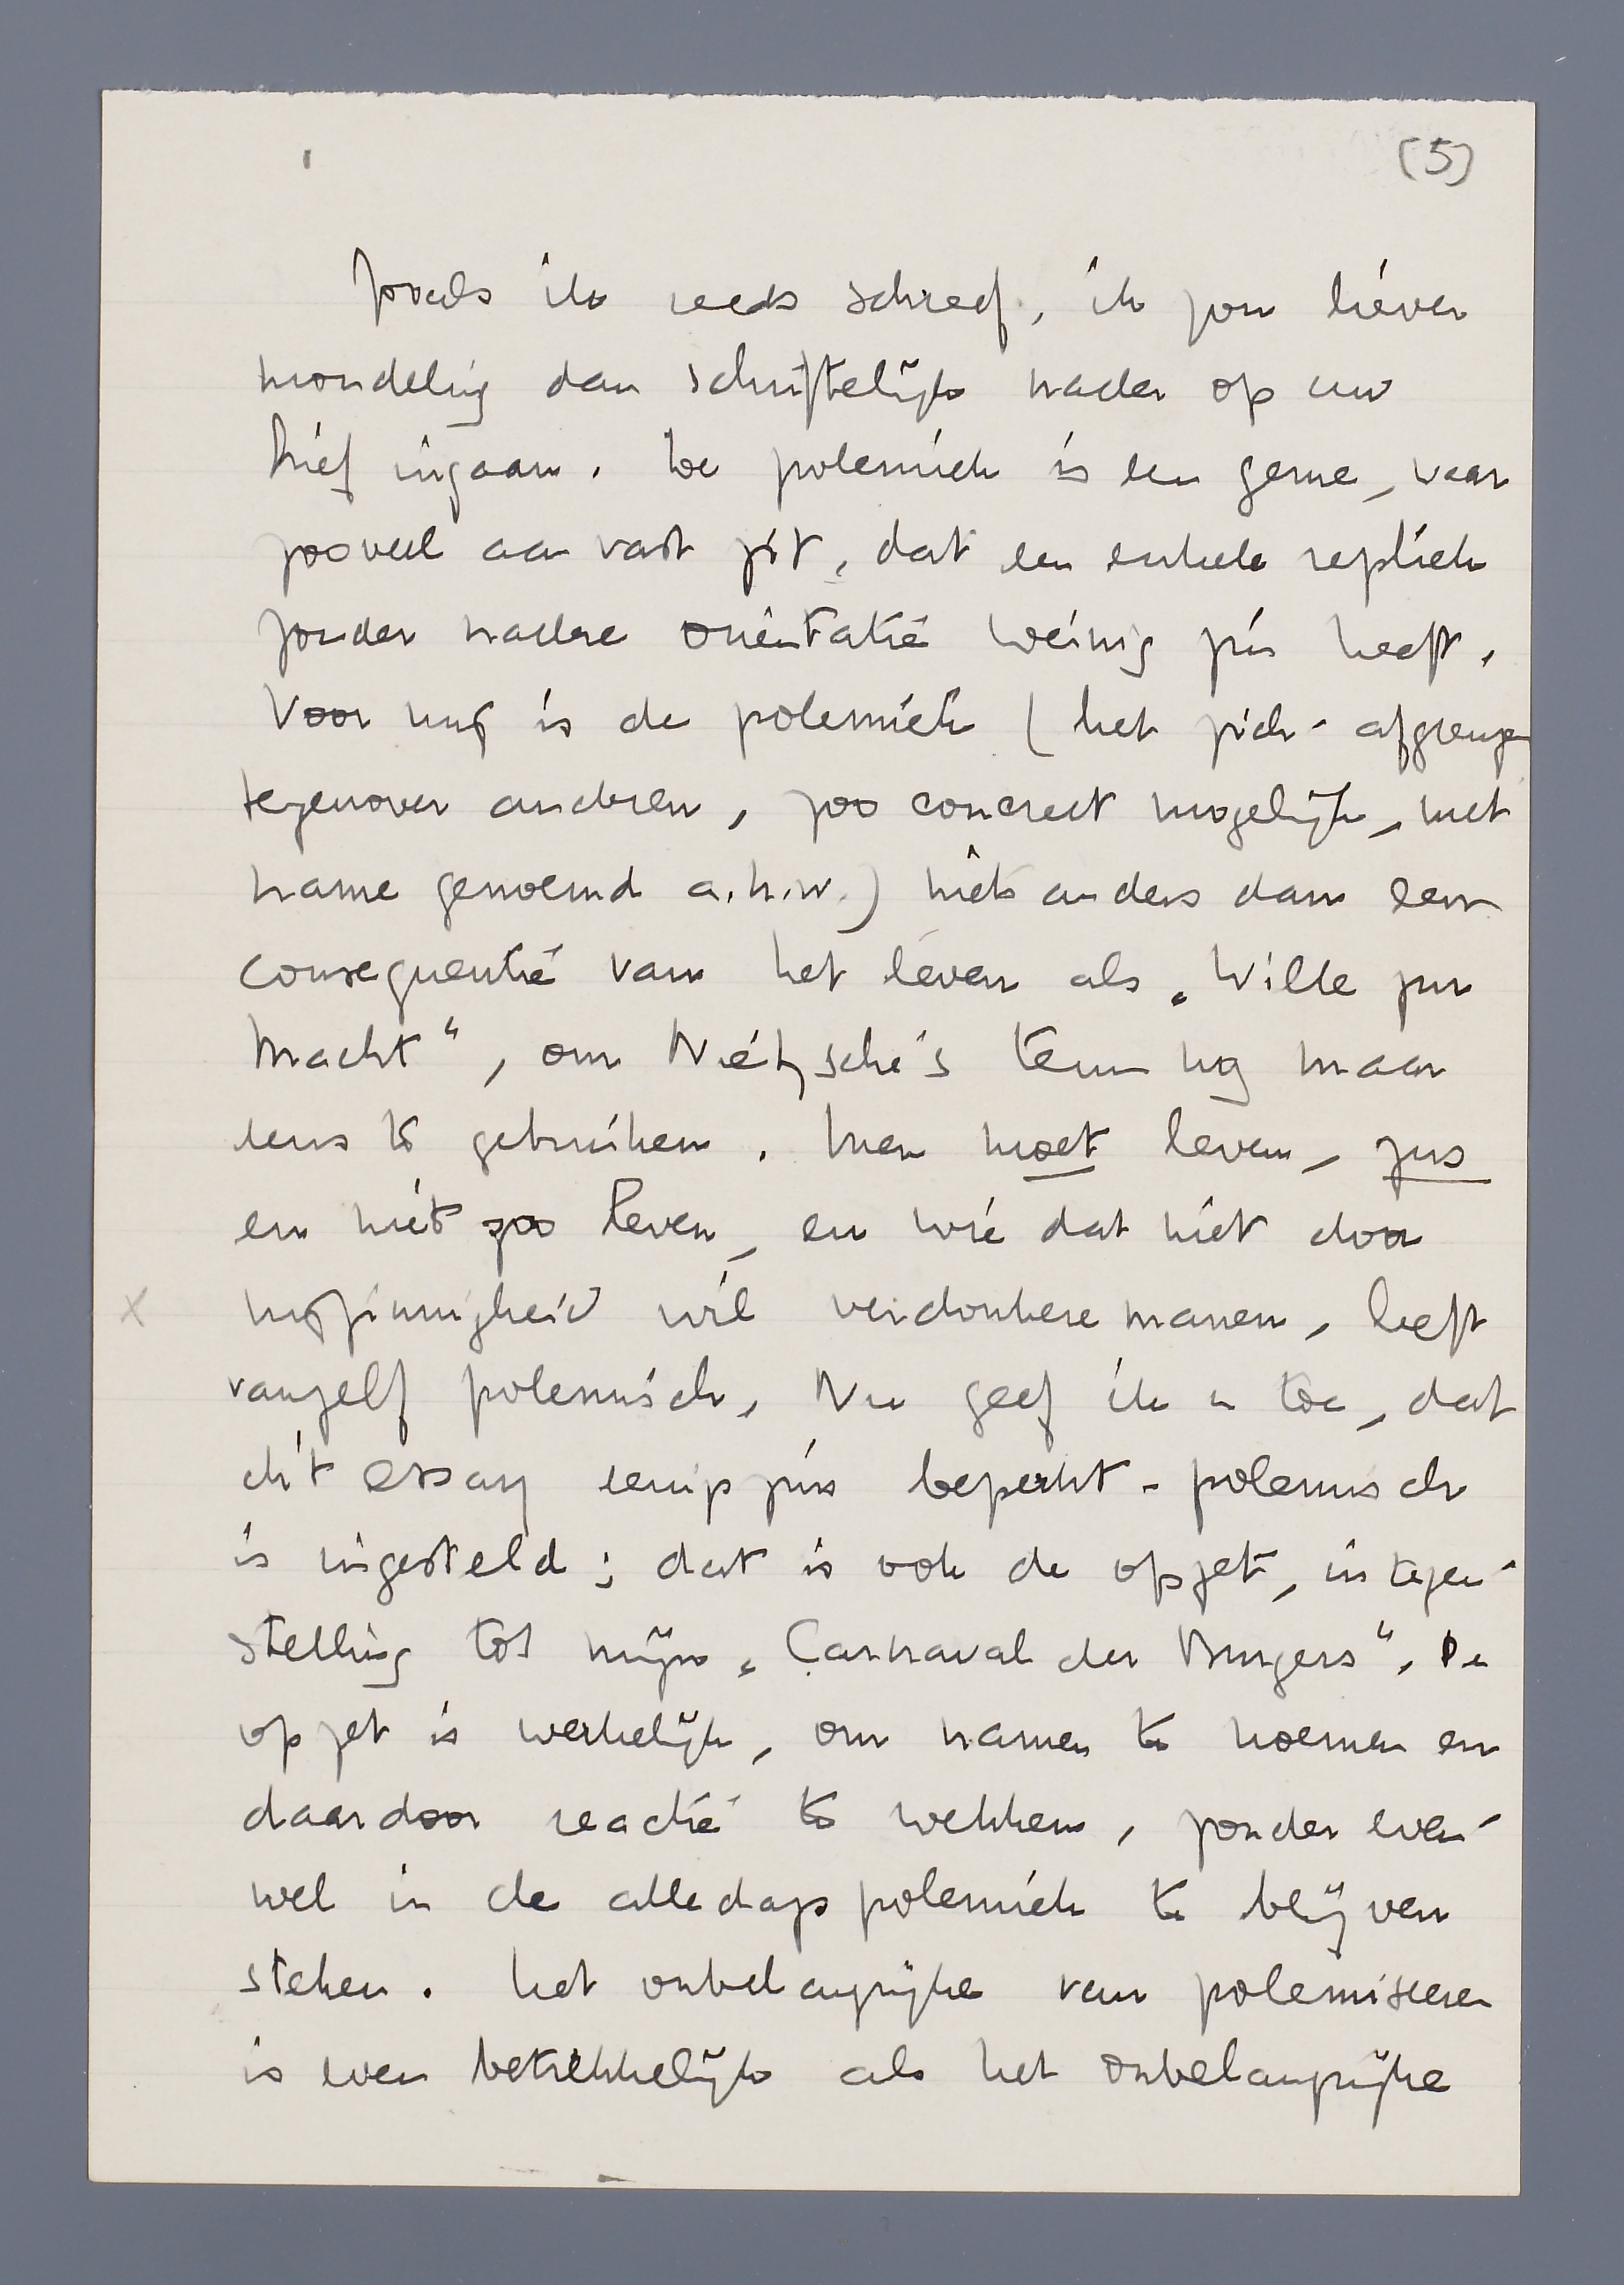 (5)
Zooals ik reeds schreef, ik zou liever
mondeling dan schriftelijk nader op uw
brief ingaan. De polemiek is een genre, waar
zooveel aan vast zit, dat een enkele repliek
zonder nadere oriëntatie weinig zin heeft.
Voor mij is de polemiek (het zich-afgrenzen
tegenover anderen, zoo concreet mogelijk, met
name genoemd a.h.w.) niets anders dan een
consequentie van het leven als „Wille zur
Macht", om Nietzsche's term nog maar
eens te gebruiken. Men moet leven, zus
en niet zoo leven, en wie dat niet door
mijzinnigheid wil verdonkeremanen, leeft
vanzelf polemisch. Nu geef ik u toe, dat
dit essay eenigszins beperkt-polemisch
is ingesteld; dat is ook de opzet, in tegen-
stelling tot mijn „Carnaval der Burgers". De
opzet is werkelijk, om namen te noemen en
daardoor reactie te wekken, zonder even-
wel in de alledags polemiek te blijven
steken. Het onbelangrijke van polemiseeren
is even betrekkelijk als het onbelangrijke